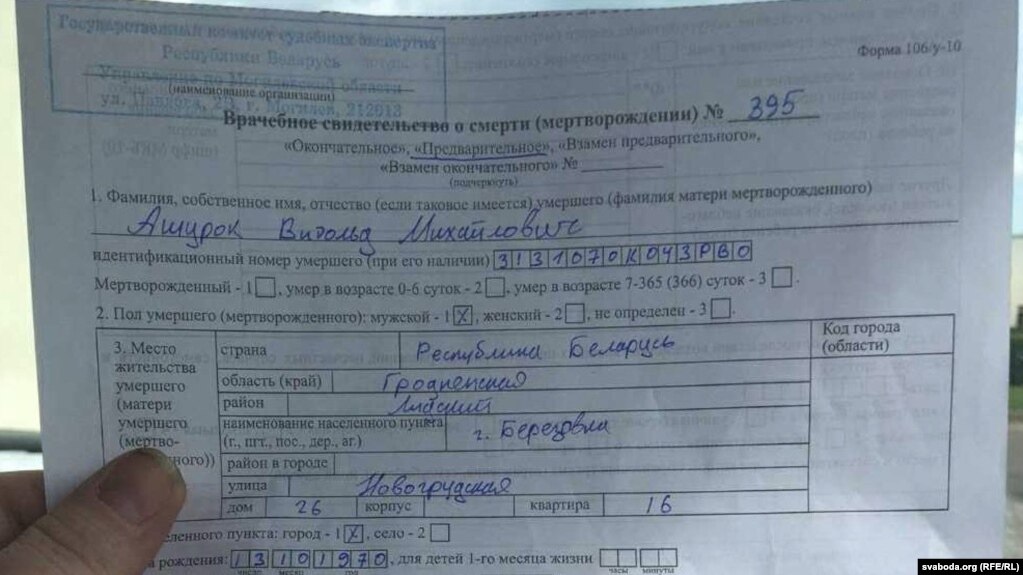 Государственный комитет судебных экспертиз
Республики Беларусь
Управление по Могилевской области
(наименование организации)
ул. Павлова, г. Могилев, 212013
Форма 106/у-10
Врачебное свидетельство о смерти (мертворождении) № 395
«Окончательное», «Предварительное», «Взамен предварительного»,
«Взамен окончательного» №
(подчеркнуть)
1. Фамилия, собственное имя, отчество (если таковое имеется) умершего (фамилия матери мертворожденного)
Ашурок Витольд Михайлович
идентификационный номер умершего (при его наличии) 3131070К043РВ0
Мертворожденный - 1 , умер в возрасте 0-6 суток - 2 , умер в возрасте 7-365 (366) суток - 3 .
2. Пол умершего (мертворожденного): мужской - 1 X , женский - 2 , не определен - 3 .
3. Место жительства умершего (матери умершего (мертво- ного))
страна Республика Беларусь
Код города (области)
область (край) Гродненская
район Лидский
наименование населенного пункта (г., пгт., пос., дер., аг.) г. Березовка
район в городе
улица Новогрудская
дом 26 корпус квартира 16
еленного пункта: город - 1 X , село - 2
рождения: 13101970 , для детей 1-го месяца жизни
число месяц год часы минуты
svaboda.org (RFE/RL)